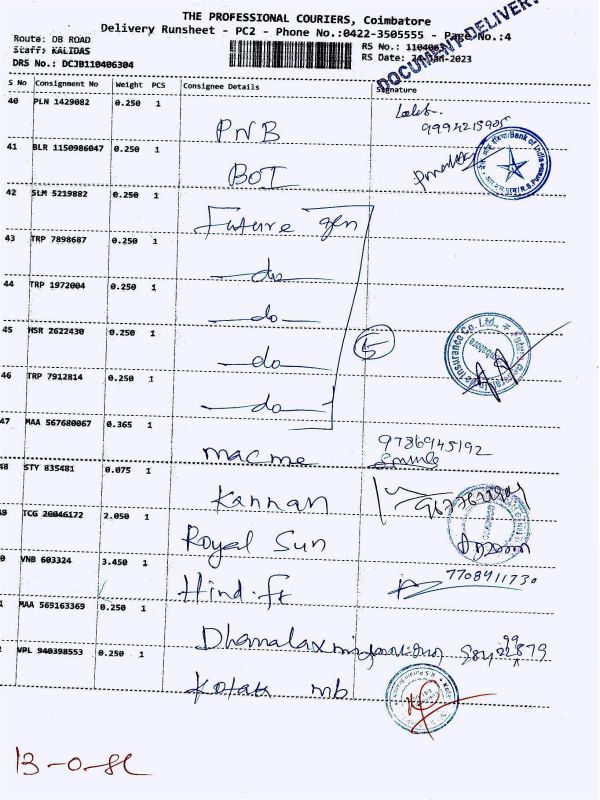 THE PROFESSIONAL COURIERS, Coimbatore
Delivery Runsheet - PC2 - Phone No.:0422-3505555 - Page No.:4
DOCUMENT DELIVERY
Route: DB ROAD
Staff: KALIDAS
DRS No.: DCJB110406304
RS No.:
RS Date: 24-Jan-2023
S No Consignment No Weight PCS Consignee Details Signature
40 PLN 1429082 0.250 1 PNB
9994215905
41 BLR 1150986047 0.250 1 BOI
Bank of India
42 SLM 5219882 0.250 1 Future gen
43 TRP 7898687 0.250 1 do
44 TRP 1972004 0.250 1 do
45 HSR 2622430 0.250 1 do
5
46 TRP 7912814 0.250 1 do
Insurance Co. Ltd.,
47 MAA 567680067 0.365 1 macme 9786945192
48 STY 835481 0.075 1 Kannan
49 TCG 20046172 2.050 1 Royal Sun
0 VNB 603324 3.450 1 Hind. Ft 7708911730
1 MAA 569163369 0.250 1
VPL 940398553 0.250 1 Kotak mb
13-0-SL